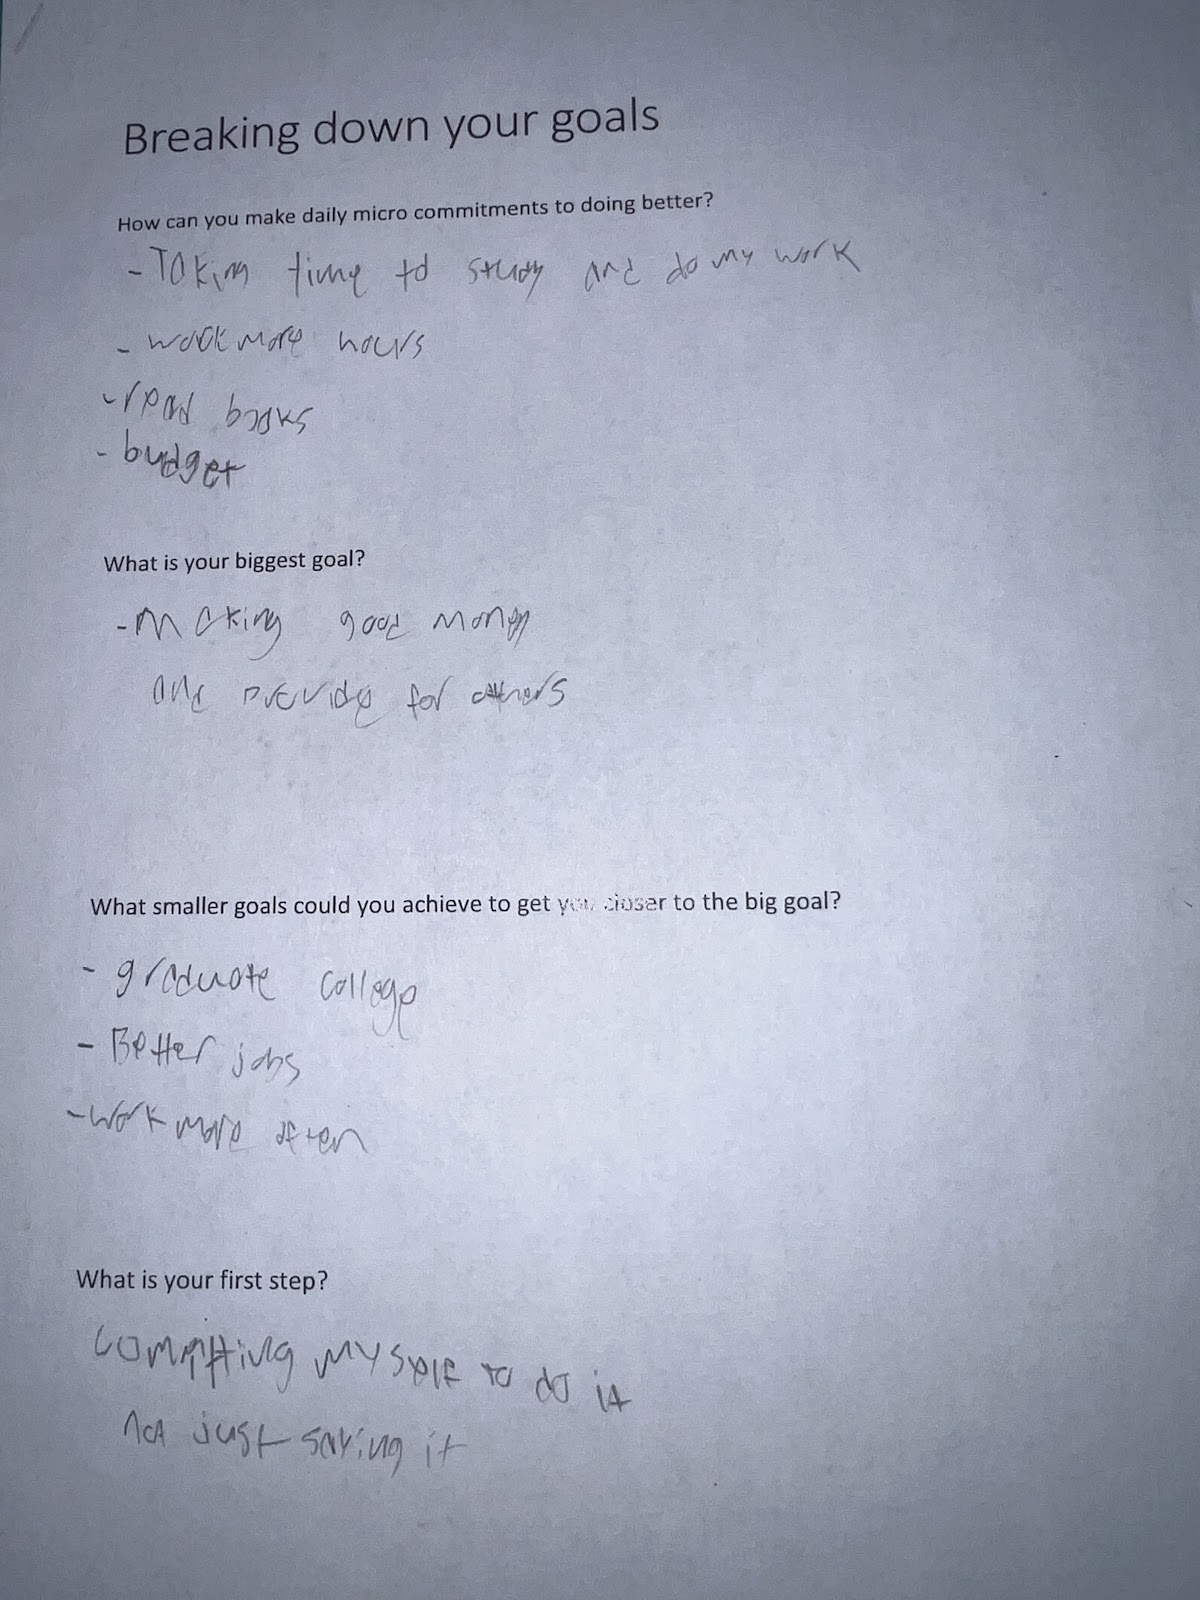 Breaking down your goals
How can you make daily micro commitments to doing better?
- Taking time to study and do my work
- work more hours
- read books
- budget
What is your biggest goal?
- Making good money
and provide for others
What smaller goals could you achieve to get you closer to the big goal?
- graduate college
- Better jobs
- work more often
What is your first step?
committing myself to do it
not just saying it